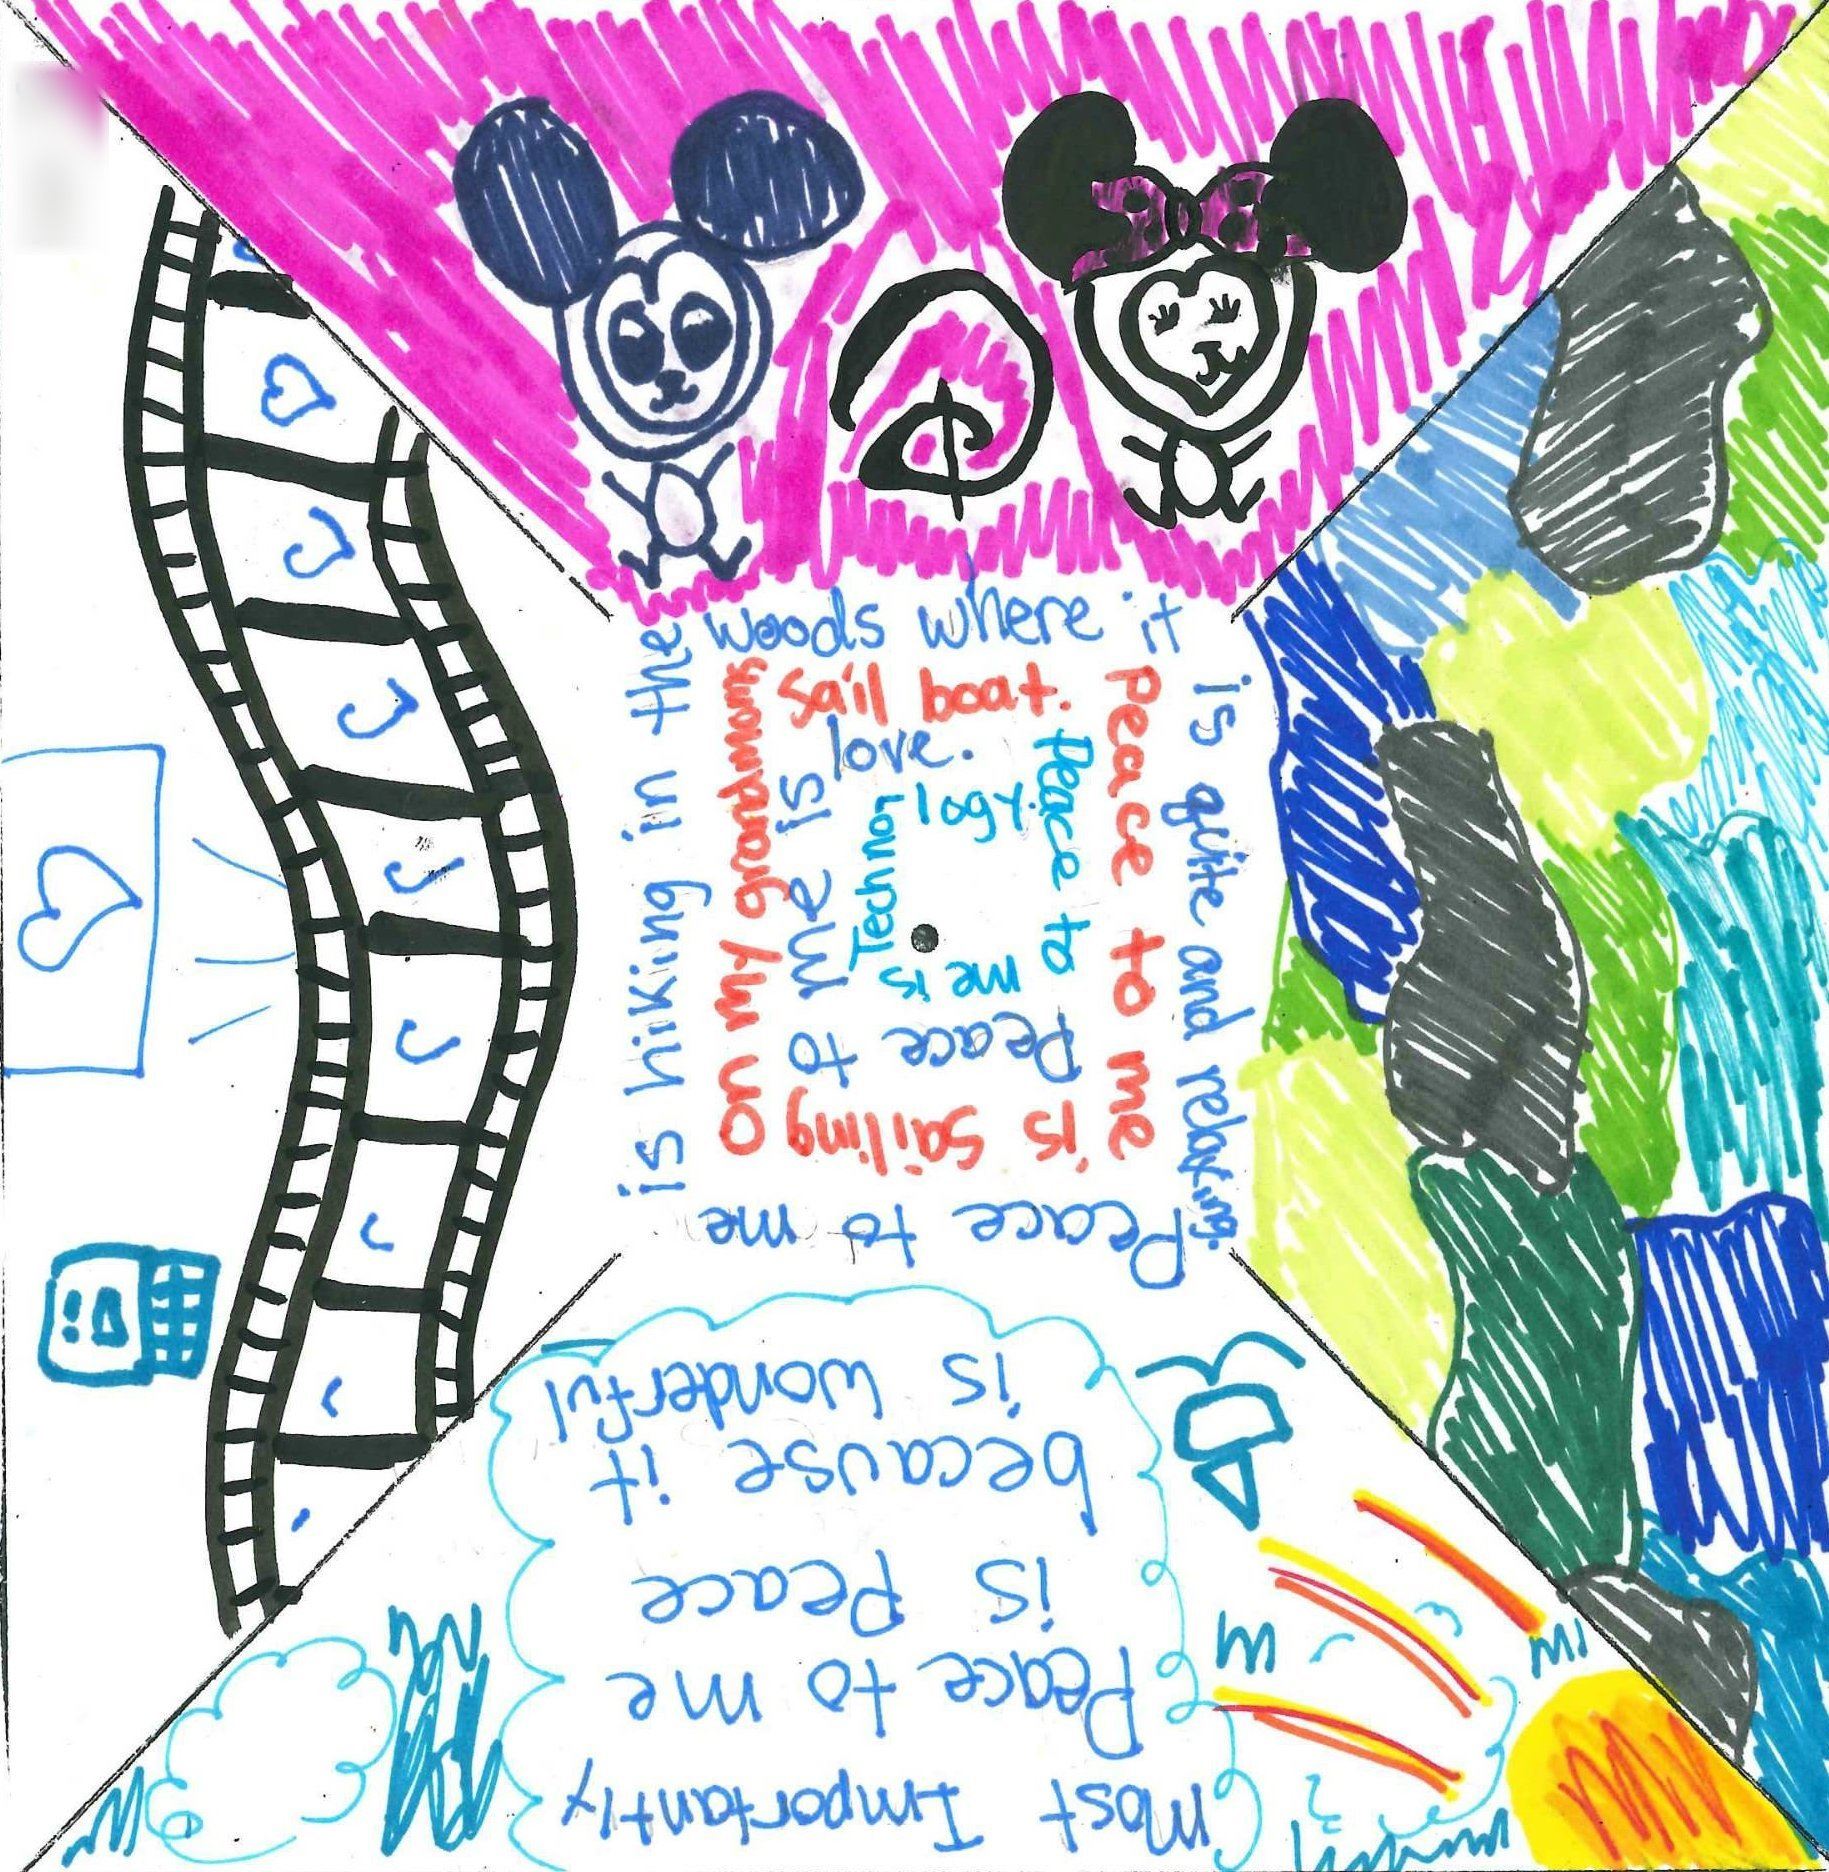 Peace to me
is hiking in the
woods where it
is quite and relaxing.
Peace to me
is sailing
on my grandmom's
sail boat.
Peace to
me is
love.
Peace to
me is
Techno-
logy.
Most Importantly
Peace to me
is Peace
because it
is wonderful